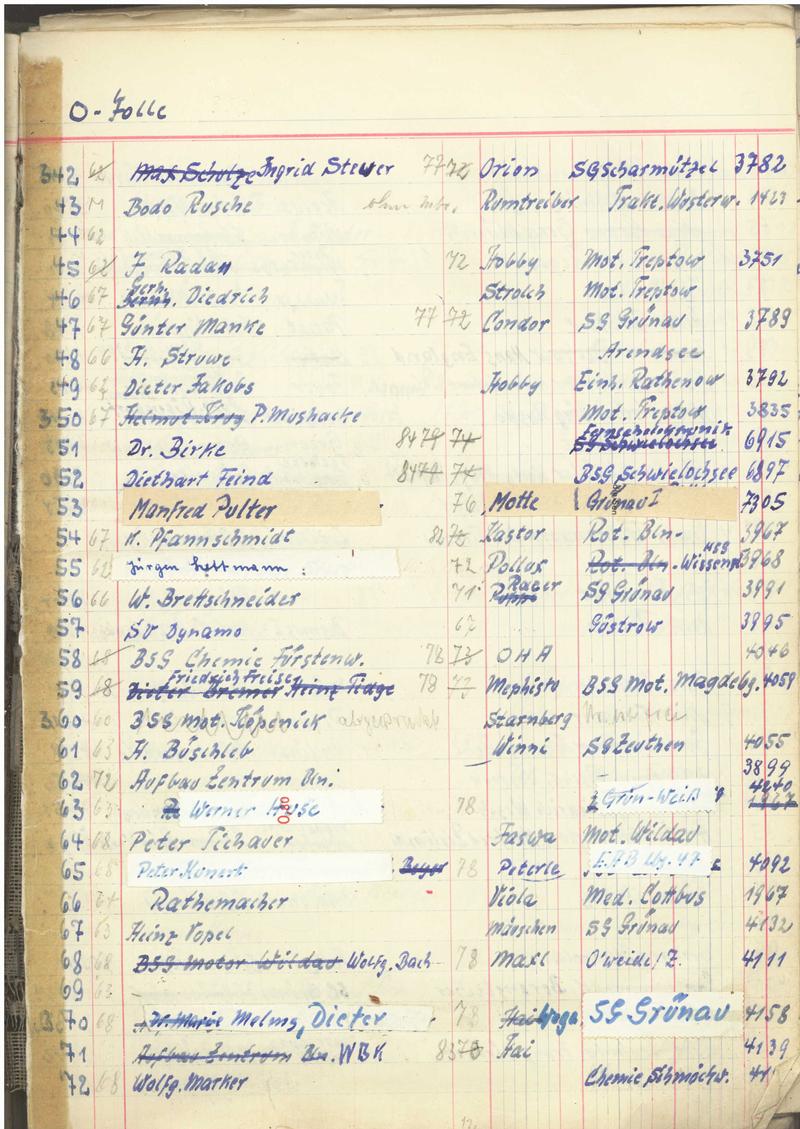 O-Jolle
342 62 Max Schulze Ingrid Stewer 77 72 Orion SG Scharmützel 3782
43 Bodo Rusche ohne Rumtreiber Trakt. 1423
44 62
45 62 J. Radan 72 Hobby Mot. Treptow 3751
46 67 Gerh. Diedrich Strolch Mot. Treptow
47 67 Günter Manke 77 72 Condor SG Grünau 3789
48 66 H. Struwe Arendsee
49 62 Dieter Jakobs Hobby Einh. Rathenow 3792
350 67 Helmut Krog P. Mushacke Mot. Treptow 3835
51 Dr. Birke 84 79 74 Fernsehelektronik SG Schwielochsee 6915
52 Diethart Feind 84 79 74 BSG Schwielochsee 6897
53 Manfred Pulter 76 Motte Grünau I 7305
54 67 K. Pfannschmidt 82 Kastor Rot. Bln- 3967
55 Jürgen 72 Pollux Rot. Bln- HSG Wissensch 3968
56 66 W. Brettschneider 71 Racer SG Grünau 3991
57 SV Dynamo 67 Güstrow 3995
58 68 BSG Chemie Fürstenw. 78 73 OHA 4046
59 68 Dieter Bremer Heinz Tidge Friedrich Freiser 78 72 Mephisto BSG Mot. Magdebg. 4059
360 60 BSG Mot. Köpenick Starnberg
61 63 H. Büschleb Winni SG Zeuthen 4055
62 72 Aufbau Zentrum Bln. 3899
63 63 Werner Hase 0,80 78 Grün-Weiß 4240 1967
64 68 Peter Tichauer Faswa Mot. Wildau
65 68 Peter Kunert Beyer 78 Peterle EAB 4092
66 Rathemacher Viola Med. Cottbus 1967
67 63 Heinz Vopel Mäuschen SG Grünau 4132
68 68 BSG Motor Wildau Wolfg. Bach 78 Maxl O'weide/Z. 4111
69 63
370 68 Melms, Dieter 78 Hai SG Grünau 4158
71 Aufbau Zentrum Bln. WBK 83 78 Hai 4139
72 68 Wolfg. Marker Chemie Schmöckw. 41